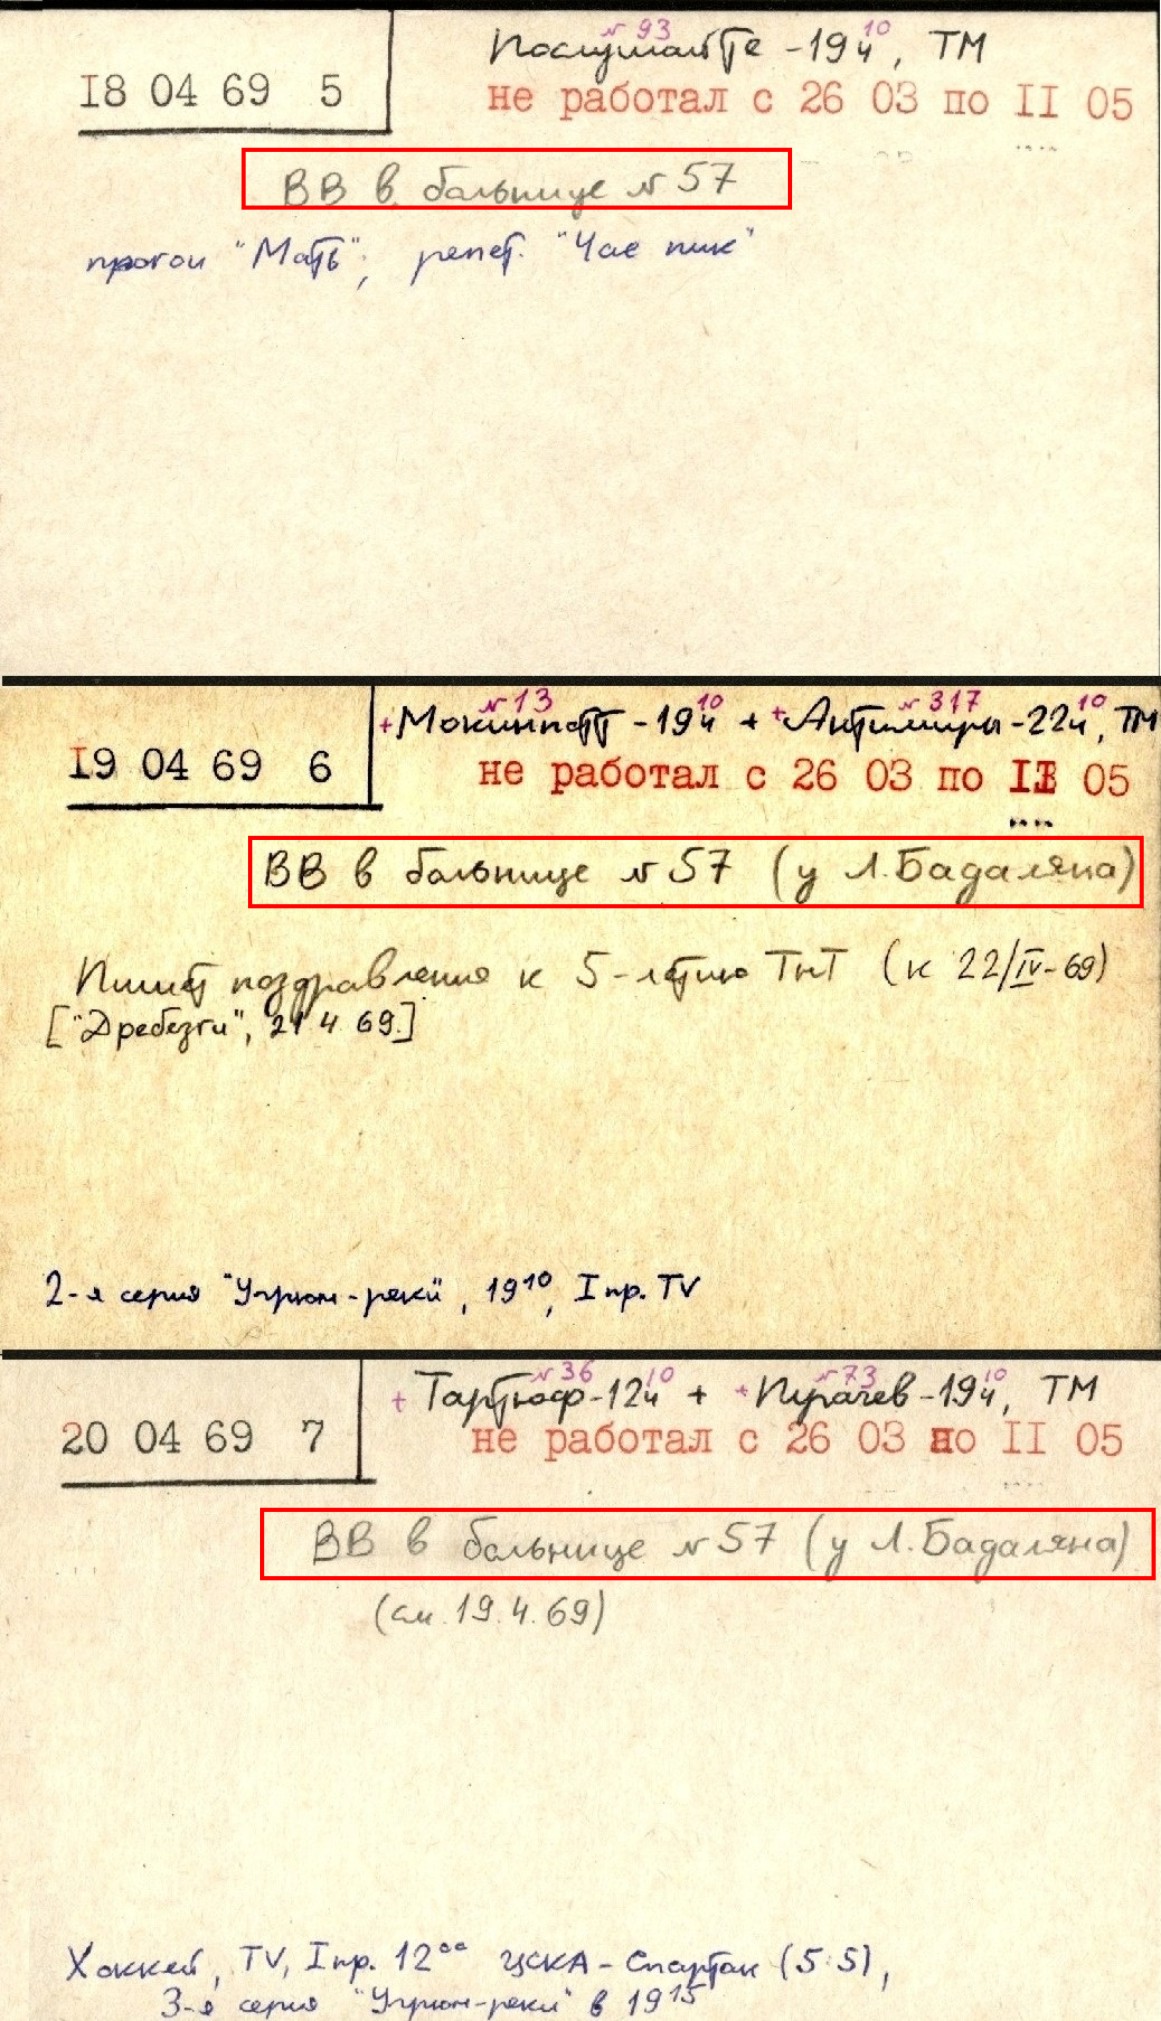 № 93
Послушайте - 19ч 10, ТМ
I8 04 69 5
не работал с 26 03 по II 05
ВВ в больнице № 57
прогон "Мать"; репет. "Час пик"
№ 13 № 317
+ Мокинпотт - 19ч 10 + + Антимиры - 22ч 10, ТМ
I9 04 69 6
не работал с 26 03 по II 05
ВВ в больнице № 57 (у Л. Бадаляна)
Пишет поздравление к 5-летию ТнТ (к 22/IV-69)
["Дребезги", 21 4 69.]
2-я серия "Угрюм-реки", 19 10, I пр. TV
№ 36 № 73
+ Тартюф - 12ч 10 + + Пугачев - 19ч 10, ТМ
20 04 69 7
не работал с 26 03 по II 05
ВВ в больнице № 57 (у Л. Бадаляна)
(см. 19.4.69)
Хоккей, TV, I пр. 12 00 ЦСКА - Спартак (5:5),
3-я серия "Угрюм-реки" в 19 15